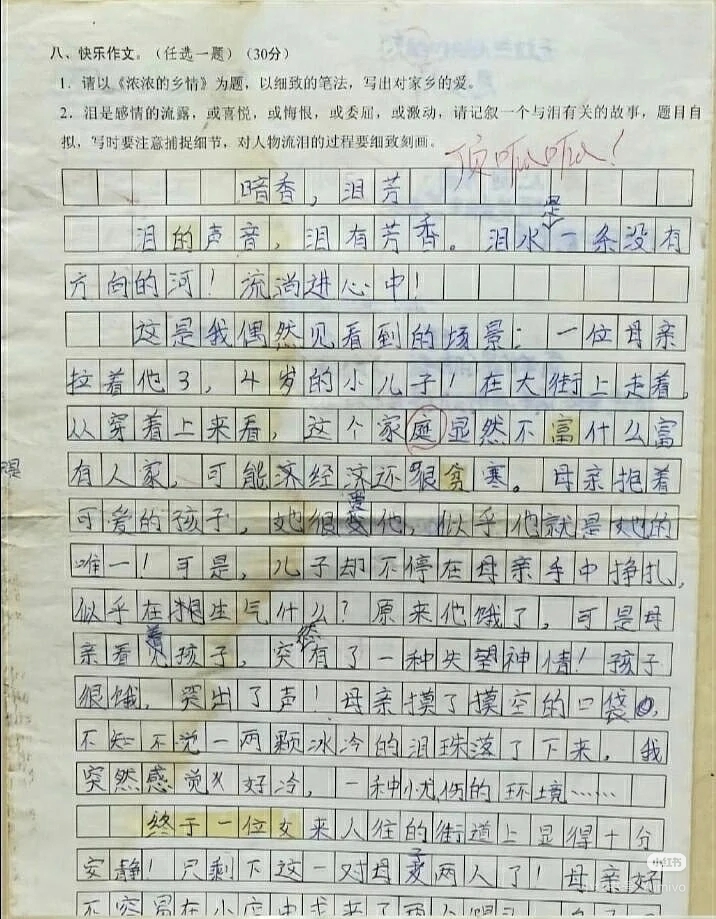 八、快乐作文。（任选一题）（30分）
1．请以《浓浓的乡情》为题，以细致的笔法，写出对家乡的爱。
2．泪是感情的流露，或喜悦，或悔恨，或委屈，或激动，请记叙一个与泪有关的故事，题目自
拟，写时要注意捕捉细节，对人物流泪的过程要细致刻画。
顶呱呱！
暗香，泪芳
泪的声音，泪有芳香。泪水是一条没有
方向的河！流淌进心中！
这是我偶然见看到的场景：一位母亲
拉着他3，4岁的小儿子！在大街上走着，
从穿着上来看，这个家庭显然不富什么富
有人家，可能济经济还很贫寒。母亲抱着
可爱的孩子，她很爱他，似乎他就是她的
唯一！可是，儿子却不停在母亲手中挣扎，
似乎在想生气什么？原来他饿了，可是母
亲看着孩子，突然有了一种失望神情！孩子
很饿，哭出了声！母亲摸了摸空的口袋，
不知不觉一两颗冰冷的泪珠落了下来，我
突然感觉好冷，一种忧伤的环境……
终于一位女来人往的街道上显得十分
安静！只剩下这一对母子两人了！母亲好
不容易在小店中找来了两个
小红书